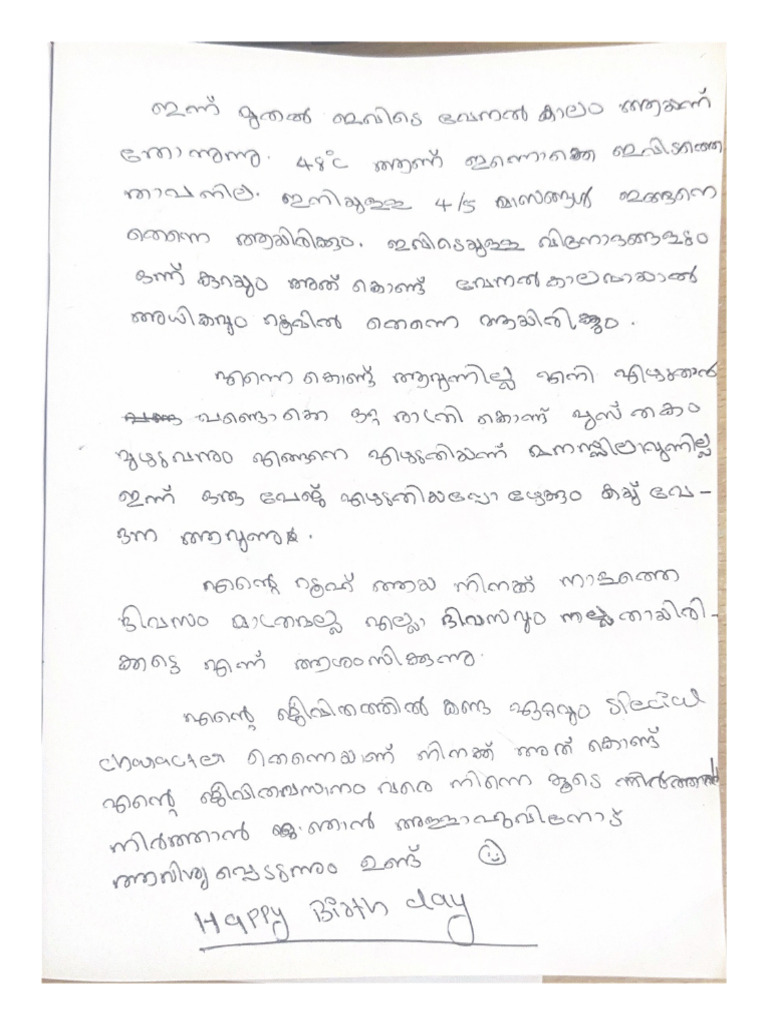 ഇന്ന് മുതൽ ഇവിടെ വേനൽ കാലം ആണെന്ന്
തോന്നുന്നു. 48°C ആണ് ഇന്നൊക്കെ ഇവിടത്തെ
താപനില. ഇനിയുള്ള 4/5 മാസങ്ങൾ ഇങ്ങനെ
തന്നെ ആയിരിക്കും. ഇവിടെയുള്ള വിനോദങ്ങളും
ഒന്ന് കുറയും അത് കൊണ്ട് വേനൽകാലമായാൽ
അധികവും റൂമിൽ തന്നെ ആയിരിക്കും.
എന്നെ കൊണ്ട് ആവുന്നില്ല എനി എഴുതാൻ
പണ്ടൊക്കെ ഒറ്റ രാത്രി കൊണ്ട് പുസ്തകം
മുഴുവനും എങ്ങനെ എഴുതിയെന്ന് മനസ്സിലാവുന്നില്ല
ഇന്ന് ഒരു പേജ് എഴുതിയപ്പോഴേക്കും കയ്യ് വേ-
ദന ആവുന്നു.
എന്റെ റൂഹ് ആയ നിനക്ക് നാളത്തെ
ദിവസം മാത്രമല്ല എല്ലാ ദിവസവും നല്ലതായിരി-
ക്കട്ടെ എന്ന് ആശംസിക്കുന്നു.
എന്റെ ജീവിതത്തിൽ കണ്ട ഏറ്റവും special
character തന്നെയാണ് നിനക്ക് അത് കൊണ്ട്
എന്റെ ജീവിതവസാനം വരെ നിന്നെ കൂടെ
നിർത്താൻ ഞാൻ അള്ളാഹുവിനോട്
ആവിശ്യപ്പെടുന്നും ഉണ്ട്
Happy Birth day